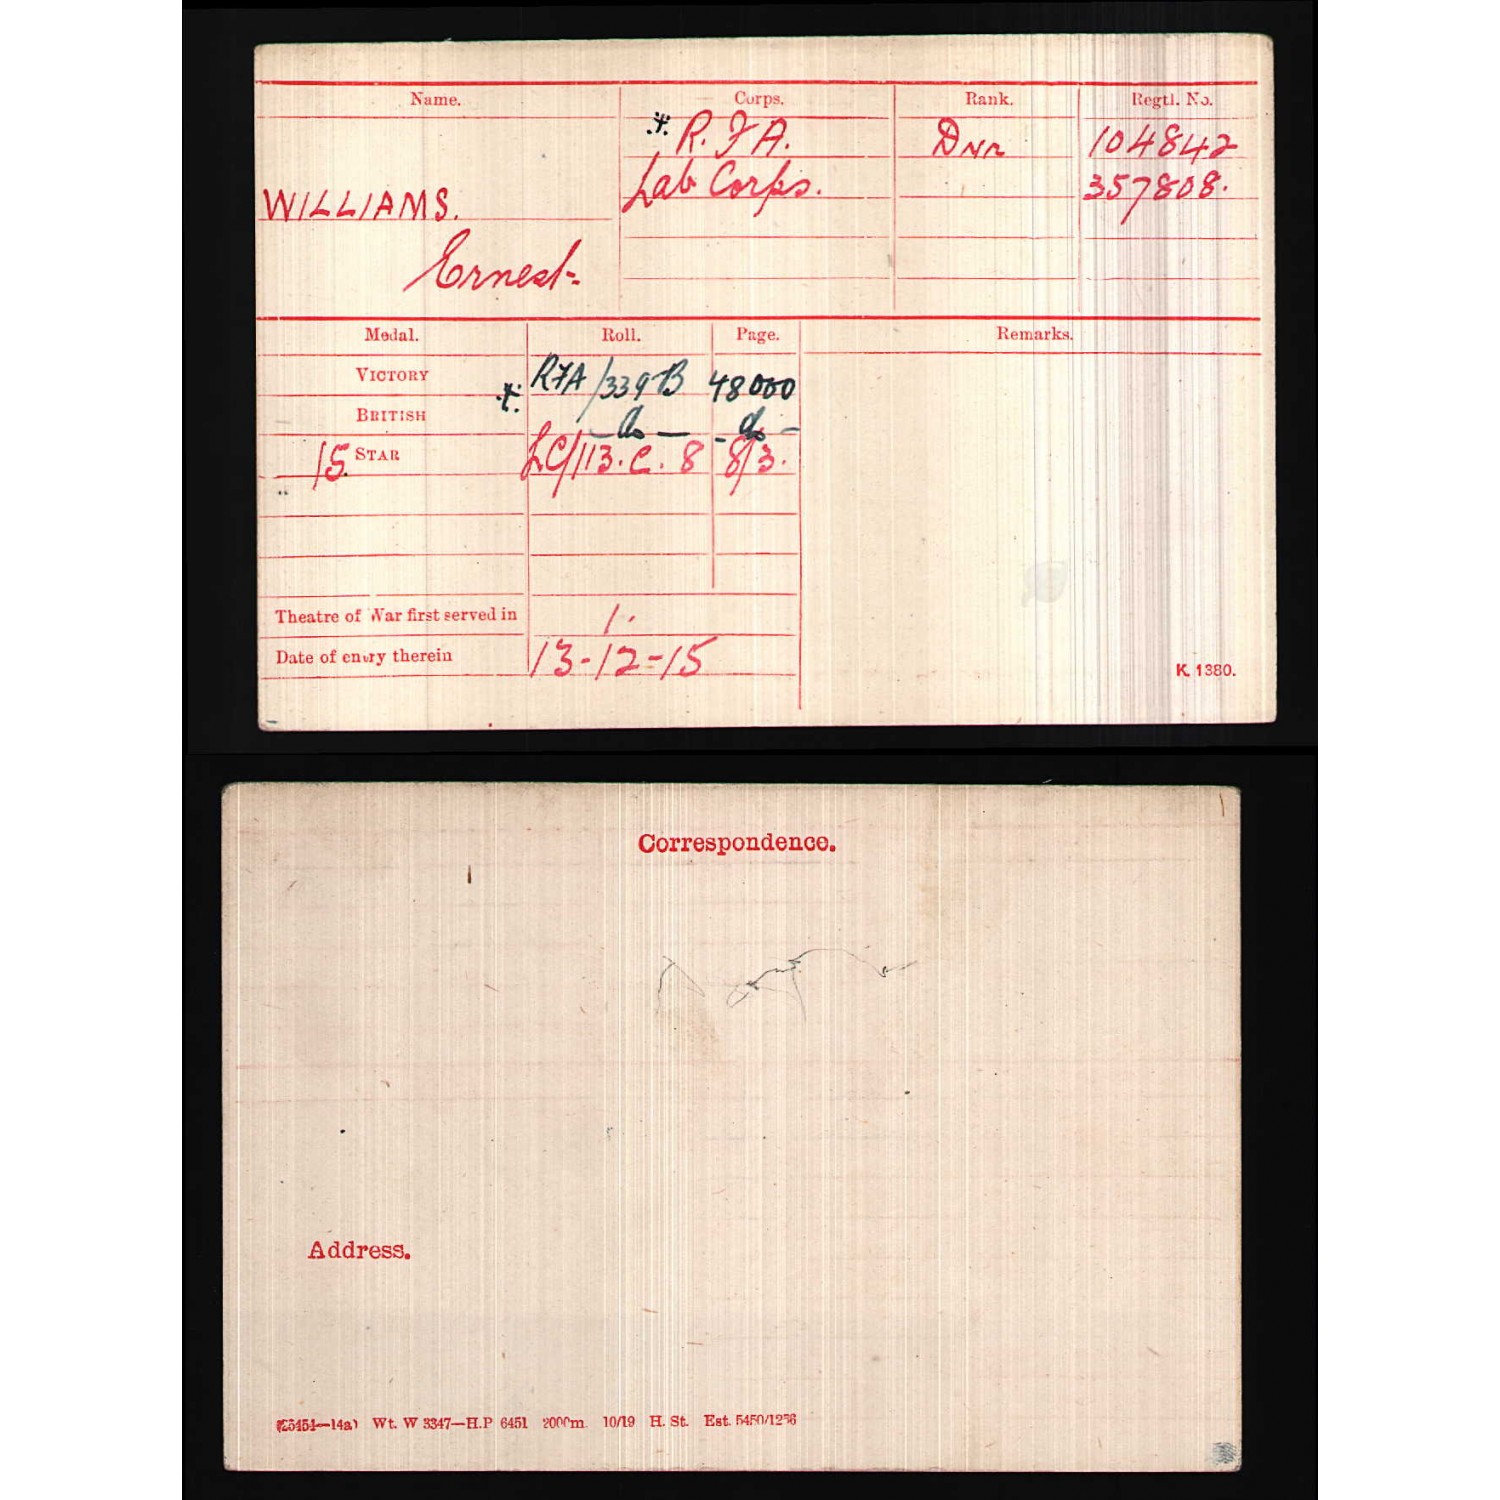 Name. Corps. Rank. Regtl. No.
R.F.A. Dvr 104842
Lab Corps. 357808.
WILLIAMS.
Ernest
Medal. Roll. Page. Remarks.
VICTORY RFA/339B 48000
BRITISH — do — - do -
15 STAR LC/113.C.8 8/3.
Theatre of War first served in 1.
Date of entry therein 13-12-15
K. 1380.
Correspondence.
Address.
Wt. W 3347—H.P 6451 2000m. 10/19 H. St. Est. 5450/1256